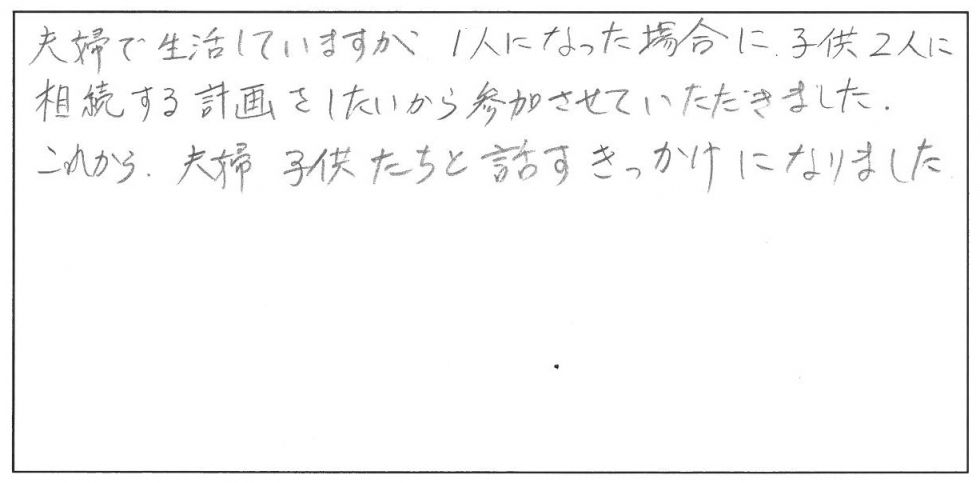 夫婦で生活していますが、1人になった場合に、子供2人に
相続する計画をしたいから参加させていただきました.
これから、夫婦 子供たちと話すきっかけになりました